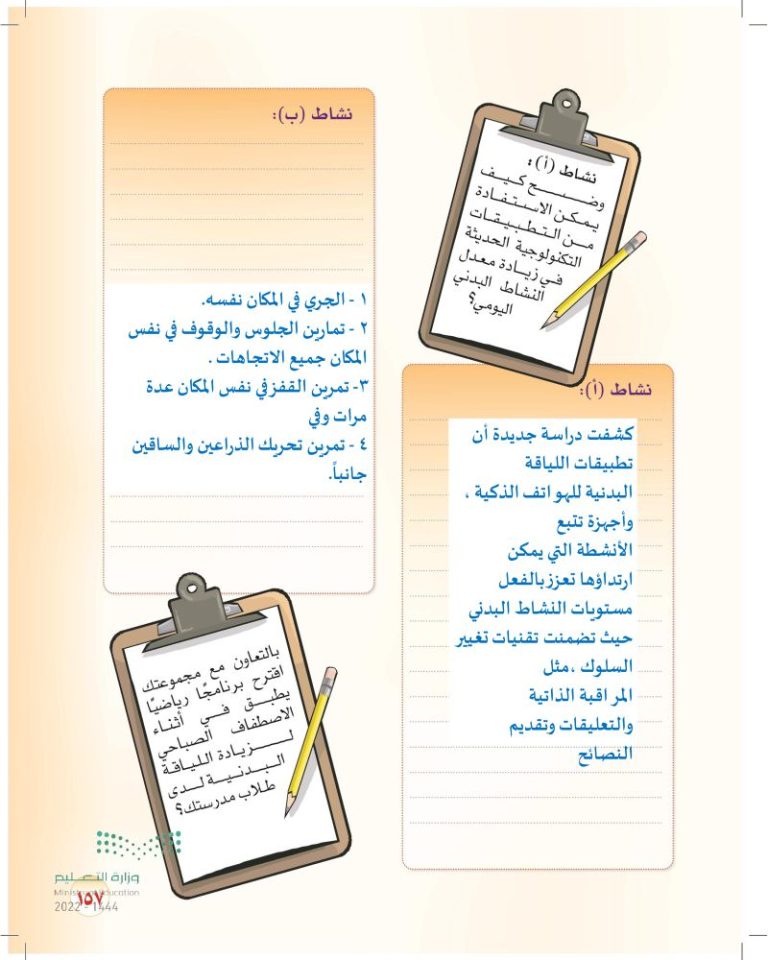 نشاط (أ) :
وضــــــح كـيـــف
يـمـكـن الاسـتـفـادة
مــن الـتـطـبـيـقـات
التكنولوجية الحديثة
فـي زيـادة معدل
النشاط البدني
اليومي؟
نشاط (أ):
كشفت دراسة جديدة أن
تطبيقات اللياقة
البدنية للهواتف الذكية ،
وأجهزة تتبع
الأنشطة التي يمكن
ارتداؤها تعزز بالفعل
مستويات النشاط البدني
حيث تضمنت تقنيات تغيير
السلوك ،مثل
المراقبة الذاتية
والتعليقات وتقديم
النصائح
نشاط (ب):
١ - الجري في المكان نفسه.
٢ - تمارين الجلوس والوقوف في نفس
المكان جميع الاتجاهات .
٣- تمرين القفز في نفس المكان عدة
مرات وفي
٤ - تمرين تحريك الذراعين والساقين
جانباً.
بالتعاون مع مجموعتك
اقترح برنامجًا رياضيًا
يطبق في أثناء
الاصطفاف الصباحي
لـــزيادة اللياقة
الـبـدنـيـة لـدى
طلاب مدرستك؟
وزارة التعـــليم
Ministry of Education
١٥٧
2022 - 1444